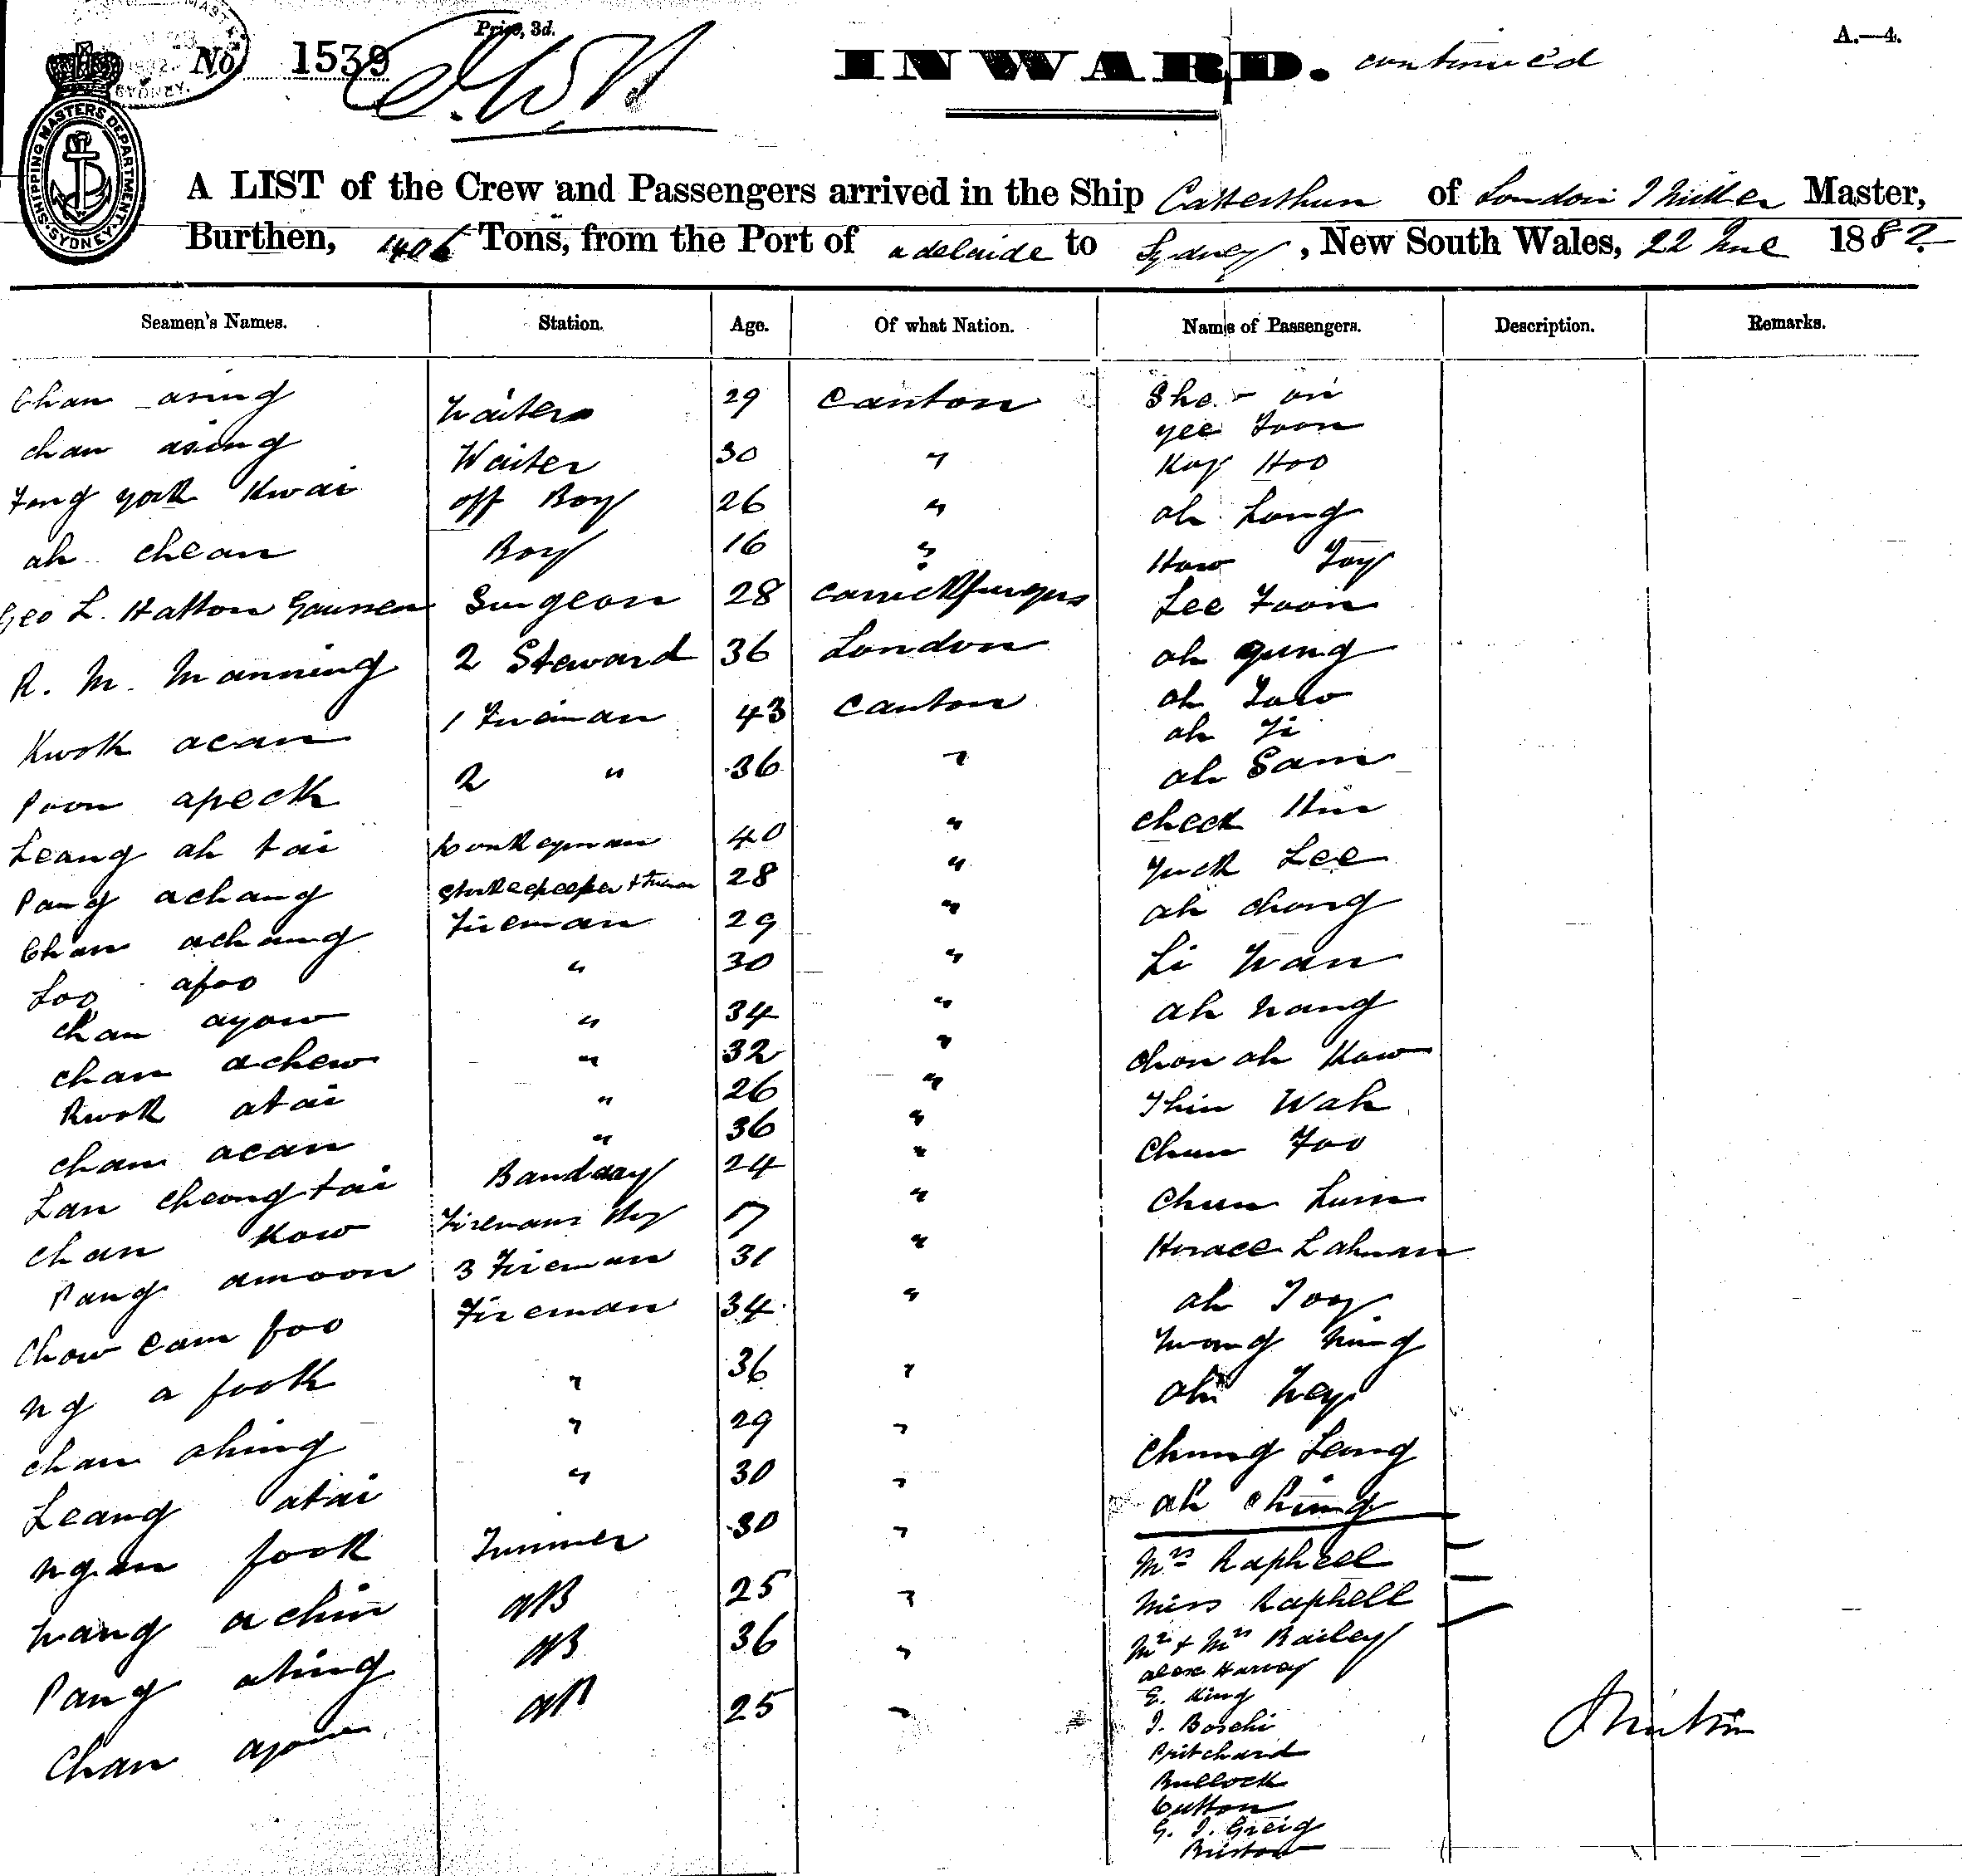 No 1539
Price, 3d.
INWARD. continued
A.—4.
SHIPPING MASTERS DEPARTMENT. SYDNEY.
A LIST of the Crew and Passengers arrived in the Ship Catterthun of London J Miller Master,
Burthen, 1406 Tons, from the Port of adelaide to Sydney, New South Wales, 22 June 1882
Seamen's Names. Station. Age. Of what Nation. Names of Passengers. Description. Remarks.
Chan asing Waiter 29 Canton She - on
yee Foon
chan asing Waiter 30 " Kay Hoo
Fong york Kwai off Boy 26 " ah Long
ah chean Boy 16 " How Foy
Geo L. Hatton Gaussen Surgeon 28 Carrickfurgus Lee Foon
R. M. Manning 2 Steward 36 London ah gung
Kwok acan 1 Fireman 43 Canton ah Low
ah Fi
Poon apeck 2 " 36 " ah Sam
Leang ah tai Donkeyman 40 " check Hin
Pang achang Storekeeper + Fireman 28 " Yuck Lee
Chan achang Fireman 29 " ah chong
Loo afoo " 30 " Li Wan
chan ayow " 34 " ah nang
chan achew " 32 " chon ah Kow
Kwok atai " 26 " Thin Wah
chan acan " 36 " Chun Foo
Lan cheong tai Bandaay 24 " Chun Lum
chan Kow Firemans Boy 17 " Horace Lahman
Pang amoon 3 Fireman 31 " ah Foy
Chow cam foo Fireman 34 " Wong hing
ng a fook " 36 " ah hey
chan ahing " 29 " Chung Leang
Leang atai " 30 " ah ching
ngan fook Trimmer 30 " Mrs Raphell
Wang achin AB 25 " Miss Raphell
Pang ahing AB 36 " Mr + Mrs Bailey
alex Harvey
E. King
Chan ayow AB 25 " J. Boschi
Pritchard
Bullock
Cutton
G. J. Greig
Bristow